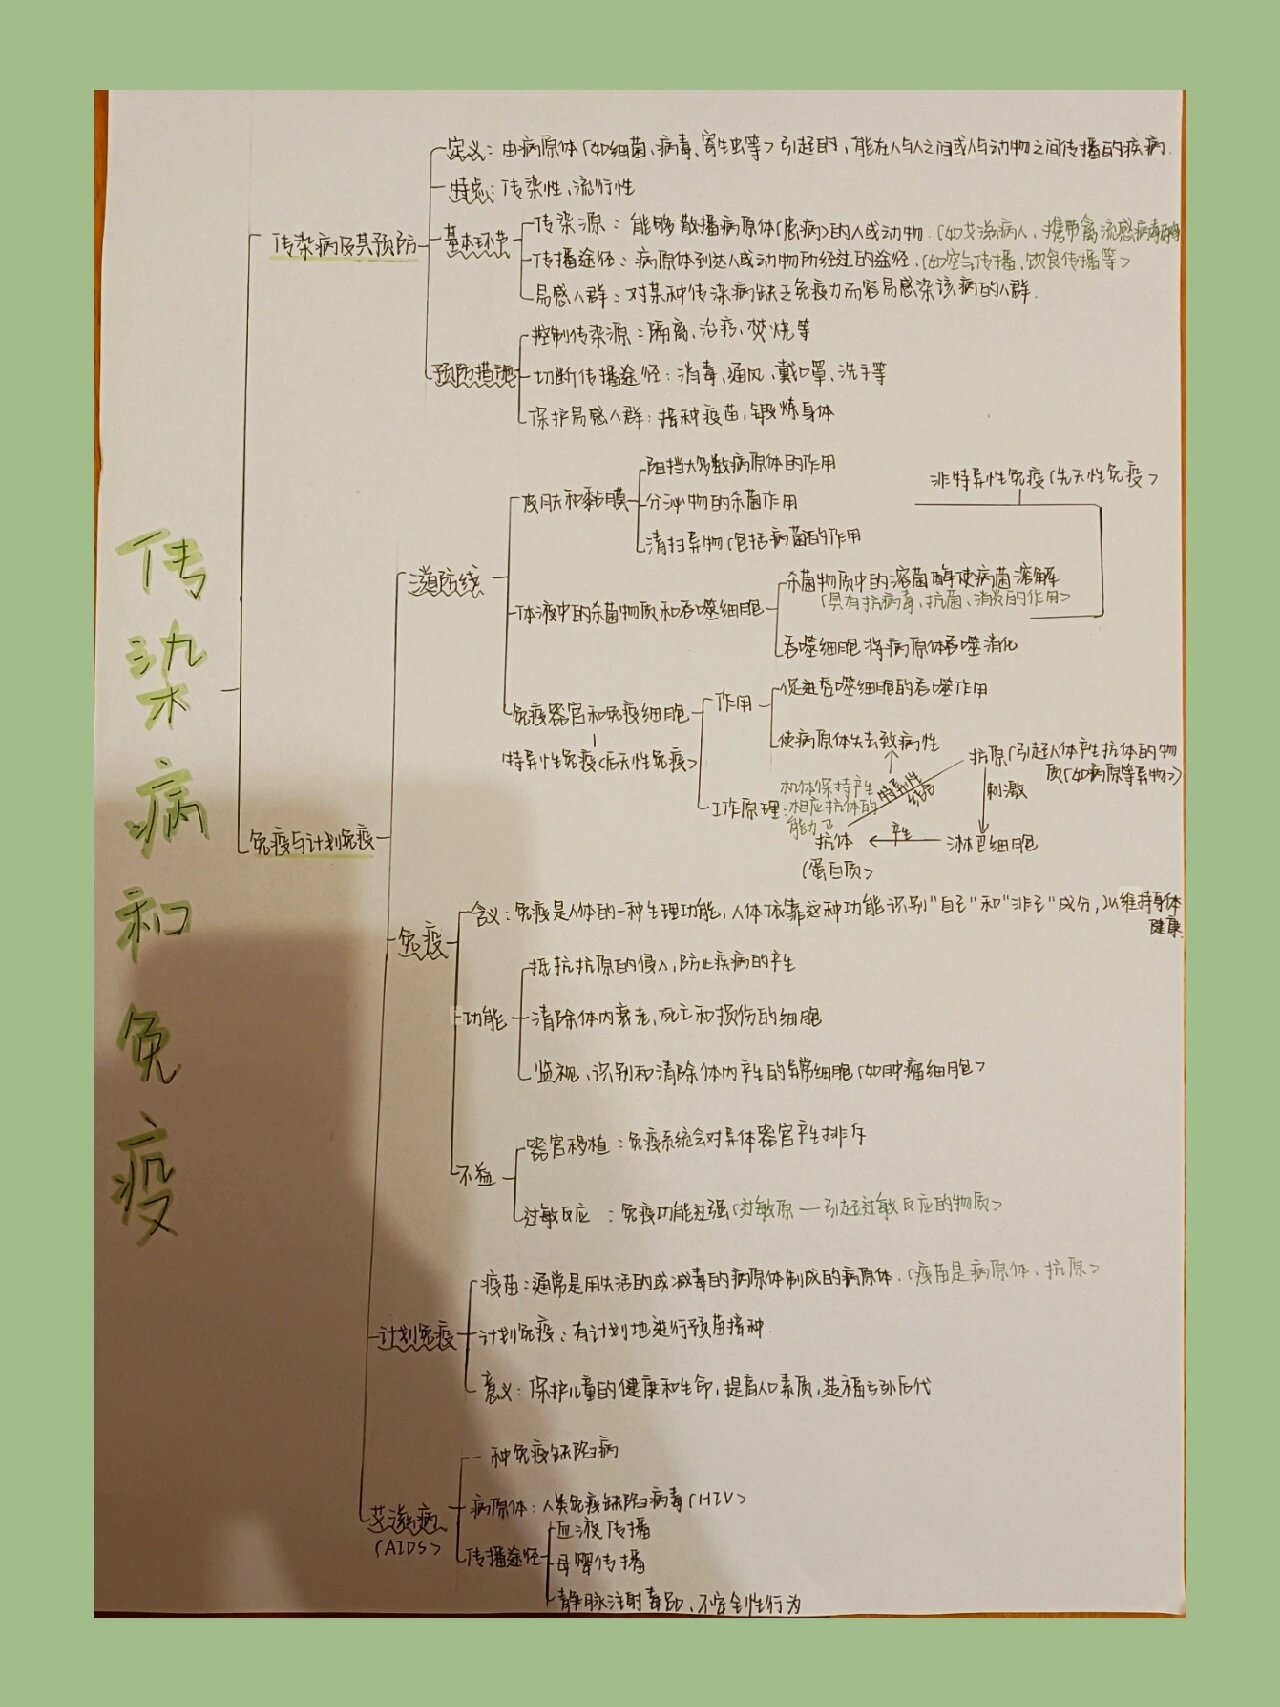 传染病和免疫
传染病及其预防
定义：由病原体（如细菌、病毒、寄生虫等）引起的，能在人与人之间或人与动物之间传播的疾病.
特点：传染性、流行性
基本环节
传染源：能够散播病原体（患病）的人或动物.（如艾滋病人、携带禽流感病毒的鸡
传播途径：病原体到达人或动物所经过的途径.（如空气传播、饮食传播等）
易感人群：对某种传染病缺乏免疫力而容易感染该病的人群.
预防措施
控制传染源：隔离、治疗、焚烧等
切断传播途径：消毒、通风、戴口罩、洗手等
保护易感人群：接种疫苗，锻炼身体
免疫与计划免疫
三道防线
皮肤和黏膜
阻挡大多数病原体的作用
分泌物的杀菌作用
清扫异物（包括病菌）的作用
非特异性免疫（先天性免疫）
体液中的杀菌物质和吞噬细胞
杀菌物质中的溶菌酶使病菌溶解
（具有抗病毒、抗菌、消炎的作用）
吞噬细胞将病原体吞噬消化
免疫器官和免疫细胞
特异性免疫（后天性免疫）
作用
促进吞噬细胞的吞噬作用
使病原体失去致病性
工作原理：
机体保持产生
相应抗体的
能力了
特异性
结合
抗原（引起人体产生抗体的物
质（如病原等异物））
刺激
淋巴细胞
产生
抗体
（蛋白质）
免疫
含义：免疫是人体的一种生理功能，人体依靠这种功能识别“自己”和“非己”成分，以维持身体
健康
功能
抵抗抗原的侵入，防止疾病的产生
清除体内衰老、死亡和损伤的细胞
监视、识别和清除体内产生的异常细胞（如肿瘤细胞）
不益
器官移植：免疫系统会对异体器官产生排斥
过敏反应：免疫功能过强（过敏原—引起过敏反应的物质）
计划免疫
疫苗：通常是用失活的或减毒的病原体制成的病原体.（疫苗是病原体、抗原）
计划免疫：有计划地进行预苗接种.
意义：保护儿童的健康和生命，提高人口素质，造福子孙后代
艾滋病
（AIDS）
一种免疫缺陷病
病原体：人类免疫缺陷病毒（HIV）
传播途径
血液传播
母婴传播
静脉注射毒品、不安全性行为